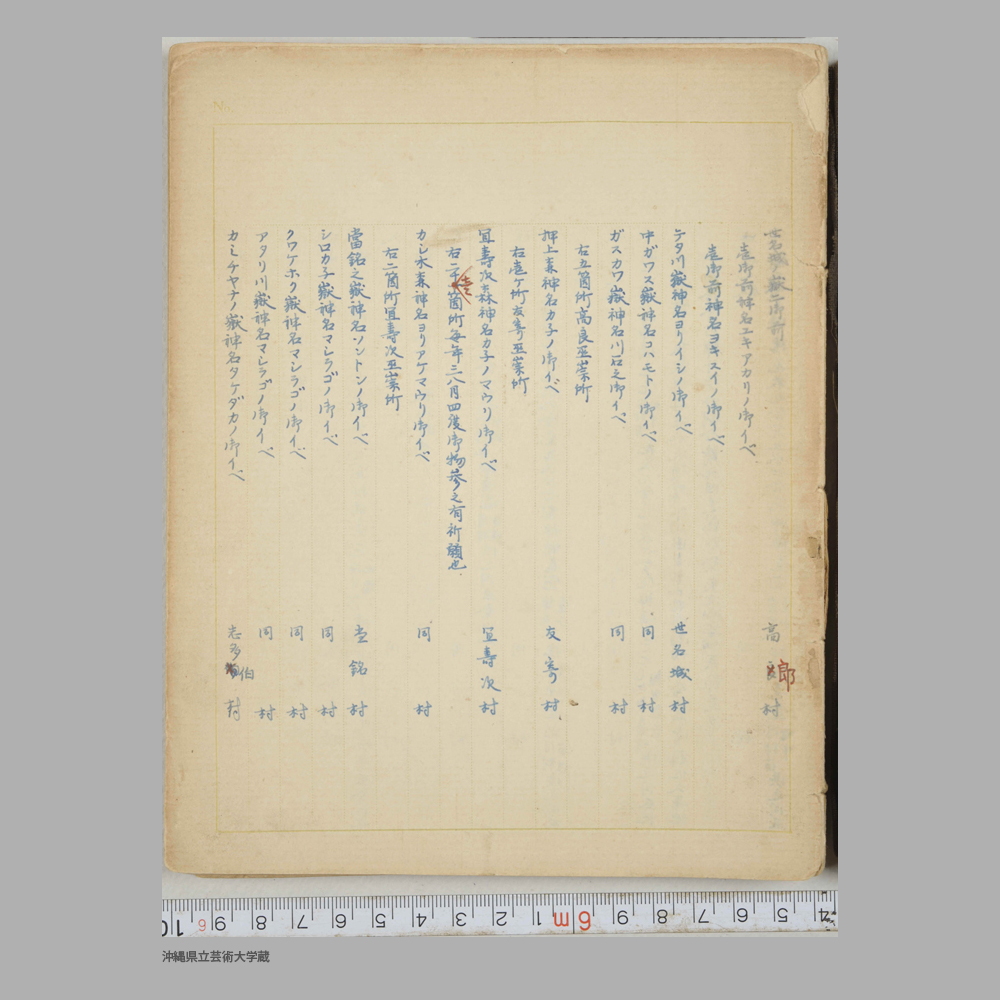 世名城ノ嶽二御前 高郎村
壱御前神名エキアカリノ御イベ
壱御前神名ヨキスイノ御イベ
テタ川嶽神名ヨリイシノ御イベ 世名城村
中ガワス嶽神名コハモトノ御イベ 同村
ガスカワ嶽神名川口之御イベ 同村
右五箇所高良巫崇所
押上森神名カ子ノ御イベ 友寄村
右壱ケ所友寄巫崇所
宜壽次森神名カ子ノマウリ御イベ 宜壽次村
右壱箇所毎年三八月四度御物参之有祈願也
カシ水森神名ヨリアケマウリ御イベ 同村
右二箇所宜壽次巫崇所
當銘之嶽神名ソントンノ御イベ 当銘村
シロカ子嶽神名マシラゴノ御イベ 同村
クワケホク嶽神名マシラゴノ御イベ 同村
アタリ川嶽神名マシラゴノ御イベ 同村
カミチヤナノ嶽神名タケダカノ御イベ 志多伯村
No.
10 6 9 8 7 6 5 4 3 2 1 6m 9 8 7 6 5 4
沖縄県立芸術大学蔵